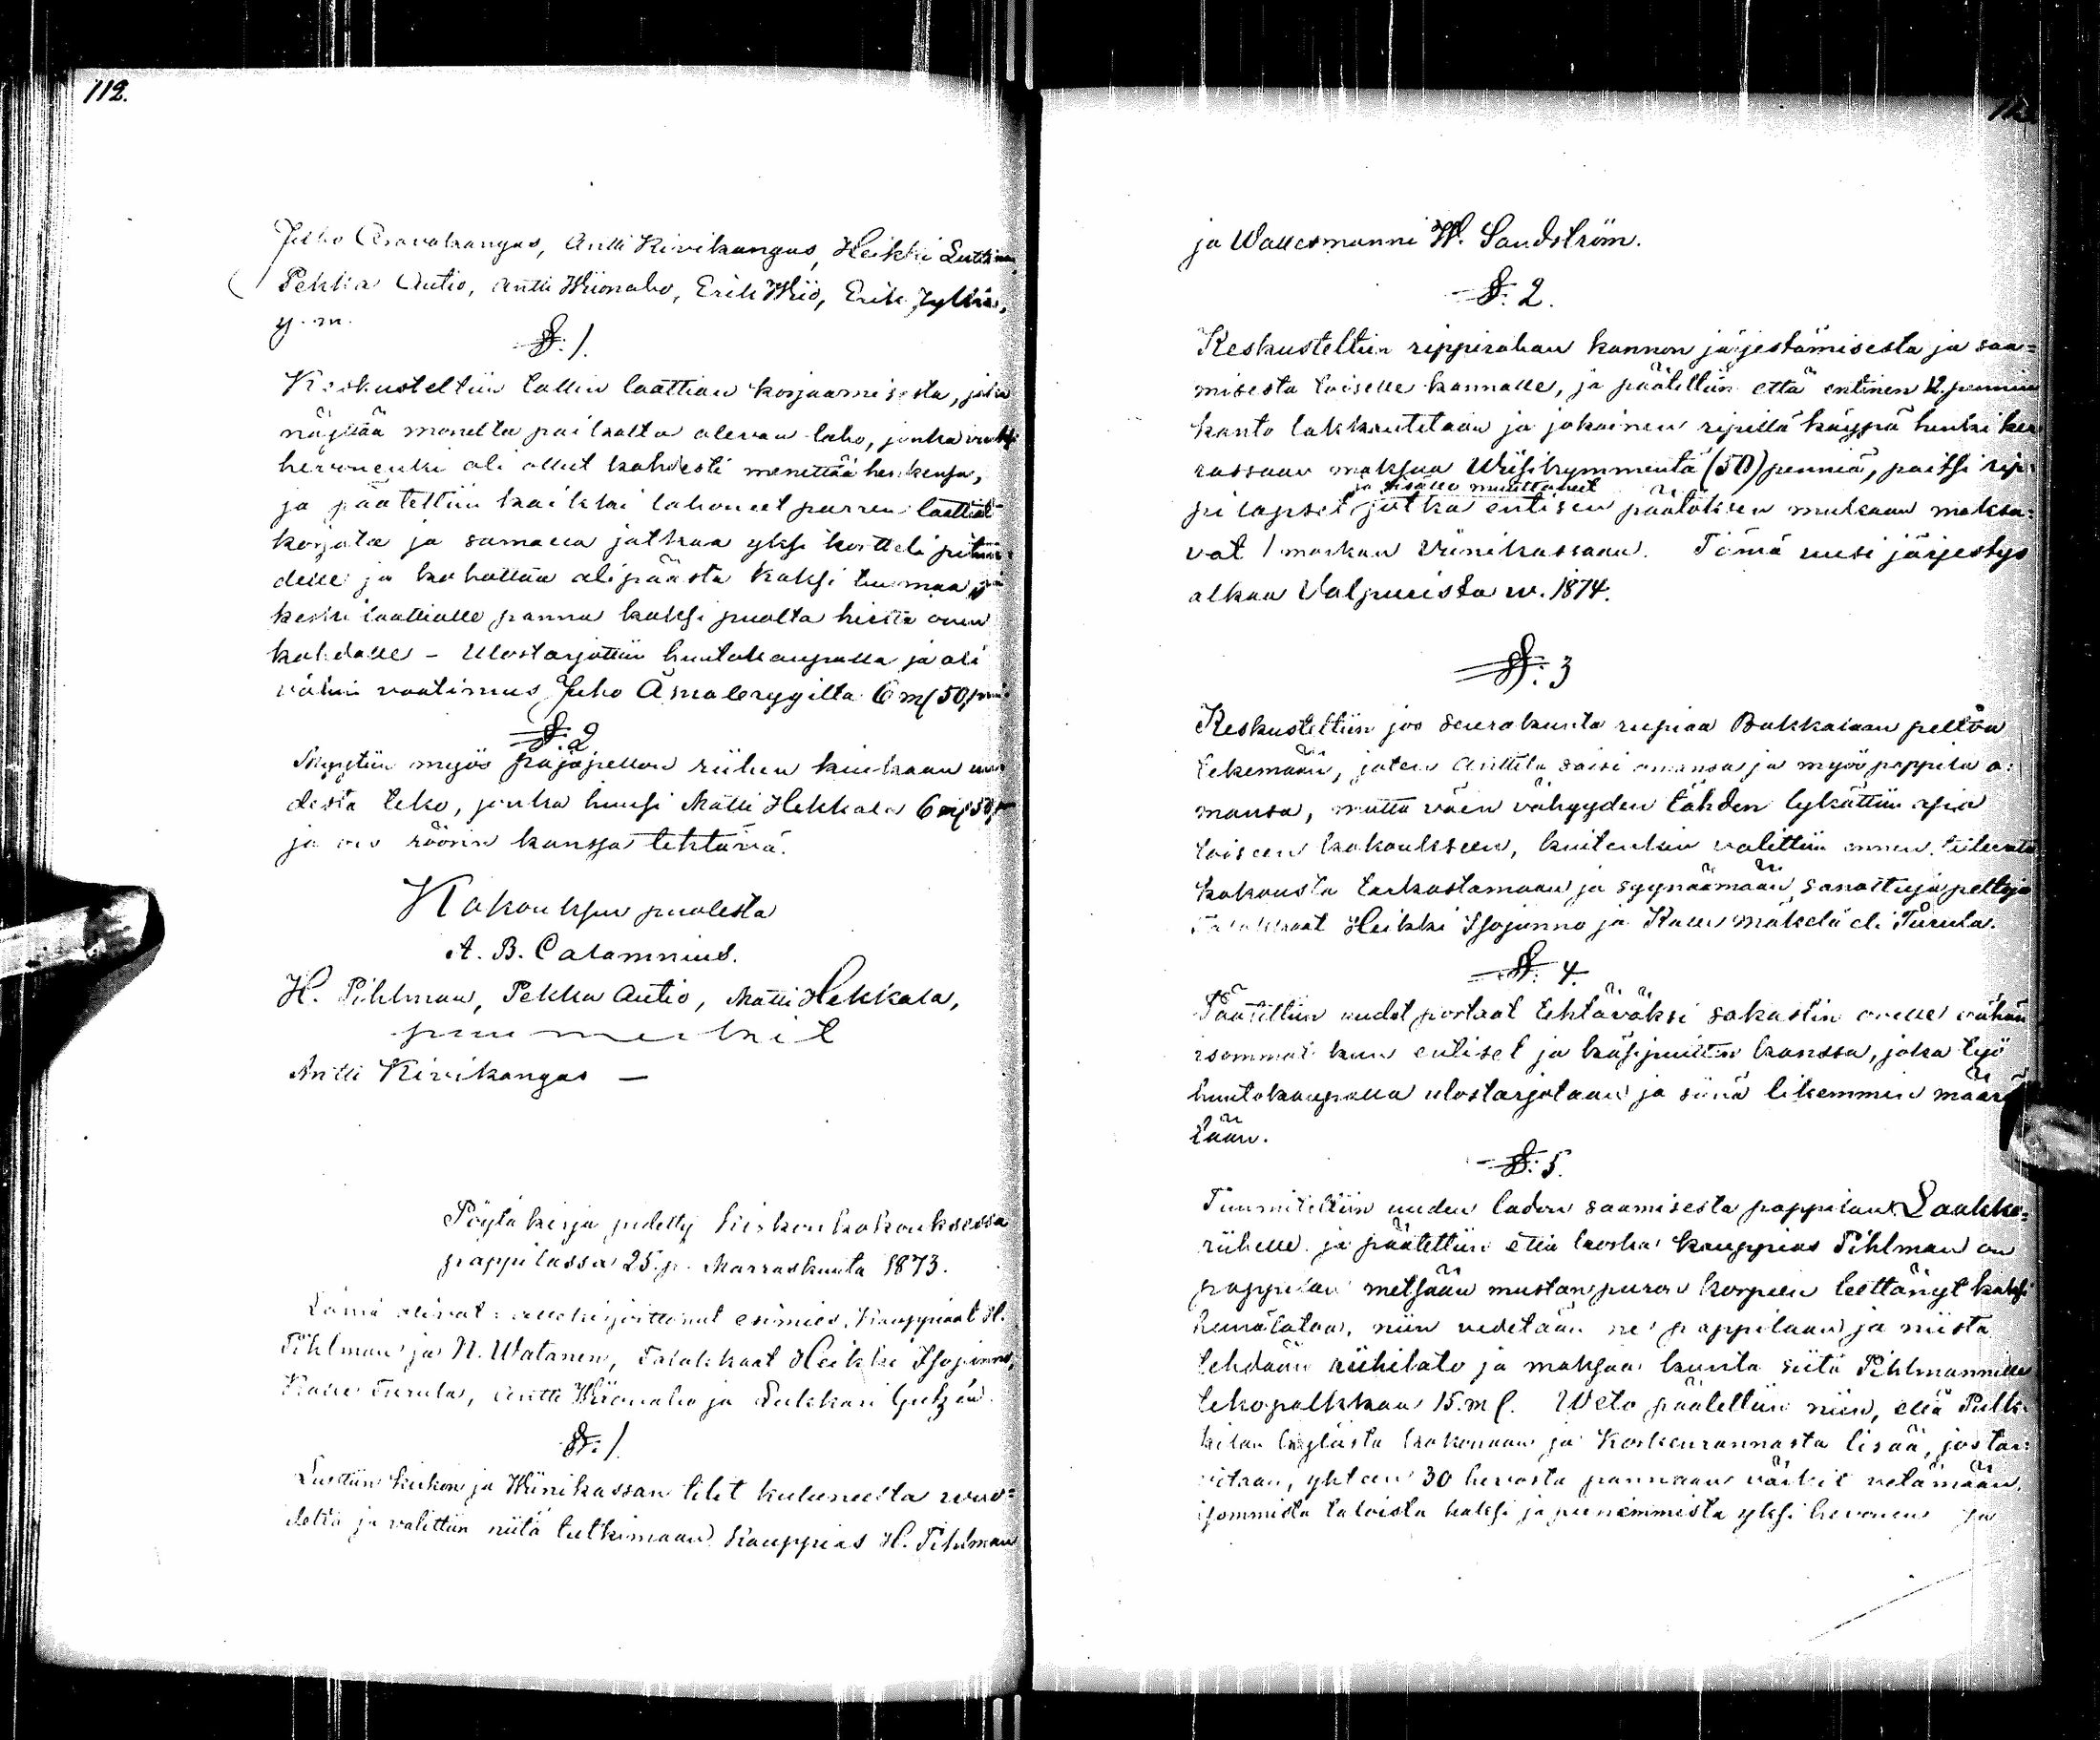 112.
Juho Aravakangas, Antti Kirikangas, Heikki
Pekka Autio, Antti Wiionaho, Erik Wiio, Erik Jylhä,
y. m.
§. 1.
Keskusteltiin tallin laattian korjaamisesta, joka
näyttää monelta paikalta olevan laho, jonka
hevonenki oli ollut kahdesti menettää henkensä,
ja päätettiin kaikki lahoneet parren laattiat
korjata ja samalla jatkaa yksi kortteli
delle ja kohottaa alipäästä kaksi tuumaa ja
keski laattialle panna kaksi puolta hirttä oven
kohdalle – Ulostarjottiin huutokaupalla ja oli
vähin vaatimus Juho Ämälerygiltä 6 mf 50
§. 2
Myytiin myös pajapellon riihen kiukaan
desta teko, jonka huusi Matti Hekkala 6 mf 50
ja on röörin kanssa tehtävä.
Kokouksen puolesta
A. B. Calamnius.
H. Pihlman, Pekka Autio, Matti Hekkala,
puumerkit
Antti Kirikangas —
Pöytäkirja pidetty kirkonkokouksessa
pappilassa 25. p. Marraskuuta 1873.
Läsnä olivat: allekirjoittanut esimies, Kauppiaat H.
Pihlman ja N. Watanen, Talokkaat Heikki Isojunno,
Kalle Turula, Antti Wiionaho ja Lukkari
§. 1
Luettiin kirkon ja Wiinikassan tilit kuluneelta wuo=
delta ja valittiin niitä tutkimaan Kauppias H. Pihlman
ja Wallesmanni W. Sandström.
§. 2.
Keskusteltiin rippirahan kannon järjestämisestä ja saa=
misesta toiselle kannalle, ja päätettiin että entinen 12. pennin
kanto lakkautetaan ja jokainen ripillä käypä henki ker
rassaan maksaa Wiisikymmentä (50) penniä, paitsi rip=
ja sisälle muuttaneet
pilapset jotka entisen päätöksen mukaan maksa=
vat 1 markan viinikassaan. Tämä uusi järjestys
alkaa Valpurista w. 1874.
§. 3
Keskusteltiin jos seurakunta rupiaa Bakkalaan peltoa
tekemään, jaten Anttila saisi omansa ja myös pappila o=
mansa, mutta väen vähyyden tähden lykättiin asia
toiseen kokoukseen, kuitenkin valittiin ennen
kokousta tarkastamaan ja syynäämään sanottuja peltoja
Talokkaat Heikki Isojunno ja Kalle Mäkelä eli Turula.
§. 4.
Päätettiin uudet portaat tehtäväksi sakastin ovelle vähän
isommat kun entiset ja käsipuitten kanssa, joka työ
huutokaupalla ulostarjotaan ja siinä likemmin määrä
tään.
§. 5.
Tuumiteltiin uuden ladon saamisesta pappilan Laakko=
riihelle ja päätettiin että koska kauppias Pihlman on
pappilan metsään mustanpuron korpeen teettänyt kaksi
heinälatoa, niin vedetään ne pappilaan ja niistä
tehdään riihilato ja maksaa kunta siitä Pihlmannille
tekopalkkaa 15. mf. Weto päätettiin niin, että Pulk=
kilan kylästä kokonaan ja Koskenrannasta lisää, jos tar=
vitaan, yhteen 30 hevosta pannaan väärtit vetämään,
isommista taloista kaksi ja pienemmistä yksi hevonen ja